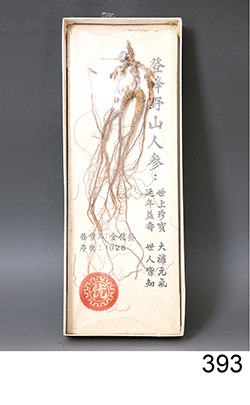 登峰野山人参：
世上珍寶 大補元氣
延年益壽 世人皆知
序號：028
393